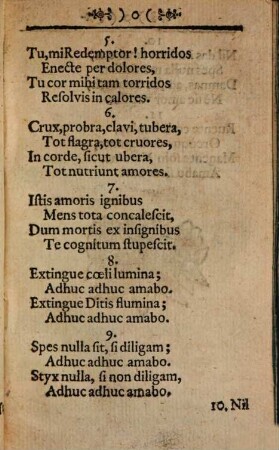 ) o (
5.
Tu, mi Redemptor! horridos
Enecte per dolores,
Tu cor mihi tam torridos
Resolvis in calores.
6.
Crux, probra, clavi, tubera,
Tot flagra, tot cruores,
In corde, sicut ubera,
Tot nutriunt amores.
7.
Istis amoris ignibus
Mens tota concalescit,
Dum mortis ex insignibus
Te cognitum stupescit.
8.
Extingue cœli lumina;
Adhuc adhuc amabo.
Extingue Ditis flumina;
Adhuc adhuc amabo.
9.
Spes nulla sit, si diligam;
Adhuc adhuc amabo.
Styx nulla, si non diligam,
Adhuc adhuc amabo.
10. Nil